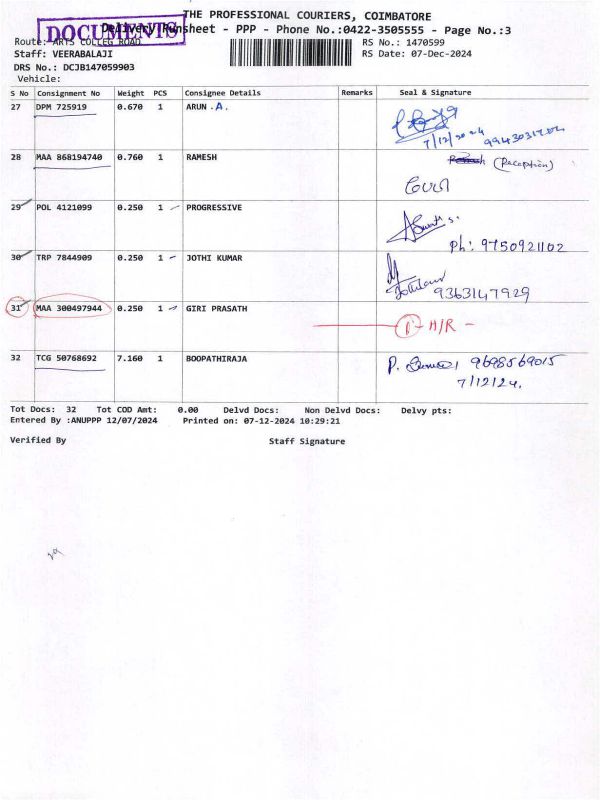 THE PROFESSIONAL COURIERS, COIMBATORE
DOCUMENTS
Delivery Runsheet - PPP - Phone No.:0422-3505555 - Page No.:3
Route: ARTS COLLEG ROAD RS No.: 1470599
Staff: VEERABALAJI RS Date: 07-Dec-2024
DRS No.: DCJB147059903
Vehicle:
S No Consignment No Weight PCS Consignee Details Remarks Seal & Signature
27 DPM 725919 0.670 1 ARUN .A.
7/12/2024 9943031702
28 MAA 868194740 0.760 1 RAMESH (Reception)
29 POL 4121099 0.250 1 PROGRESSIVE
Ph: 9750921102
30 TRP 7844909 0.250 1 JOTHI KUMAR
9363147929
31 MAA 300497944 0.250 1 GIRI PRASATH
H/R -
32 TCG 50768692 7.160 1 BOOPATHIRAJA P. 9698569015
7/12/24.
Tot Docs: 32 Tot COD Amt: 0.00 Delvd Docs: Non Delvd Docs: Delvy pts:
Entered By :ANUPPP 12/07/2024 Printed on: 07-12-2024 10:29:21
Verified By Staff Signature